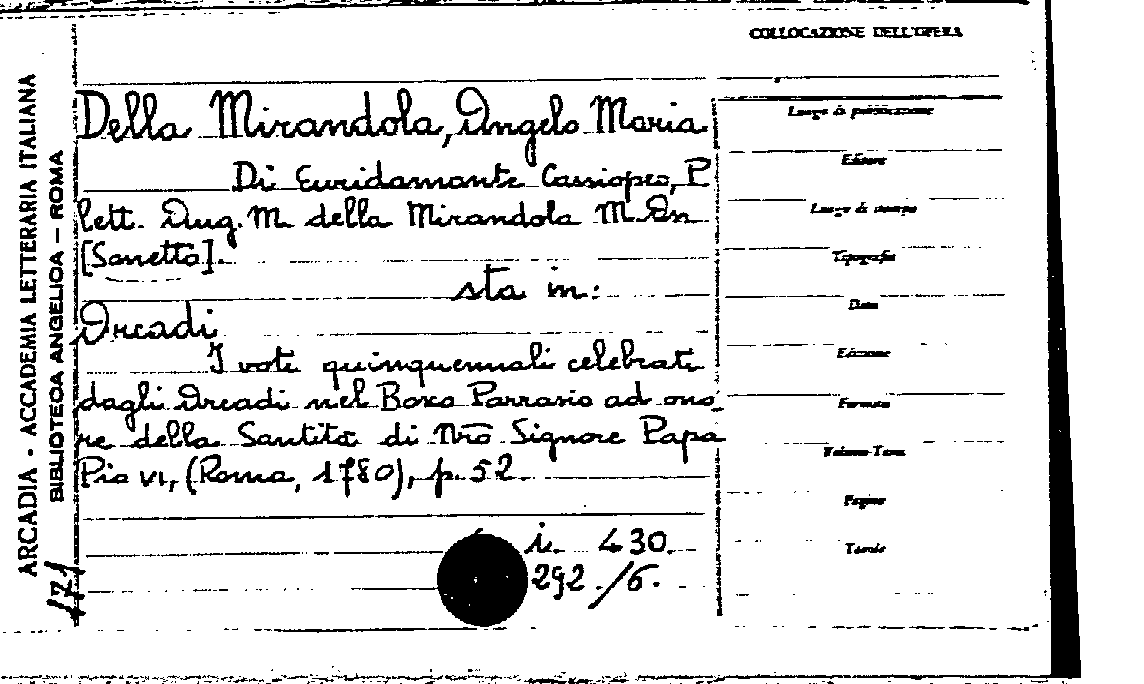 COLLOCAZIONE DELL'OPERA
ARCADIA - ACCADEMIA LETTERARIA ITALIANA
BIBLIOTECA ANGELICA — ROMA
171
Della Mirandola, Angelo Maria
Di Euridamante Cassiopeo, P.
lett. Ang. M. della Mirandola M. On
[Sonetto].
sta in:
Arcadi
I voti quinquennali celebrati
dagli Arcadi nel Bosco Parrasio ad ono_
re della Santità di Nro Signore Papa
Pio VI, (Roma, 1780), p. 52.
i. 430.
292./6.
Luogo di pubblicazione
Editore
Luogo di stampa
Tipografia
Data
Edizione
Formato
Volume-Tomo
Pagine
Tavole